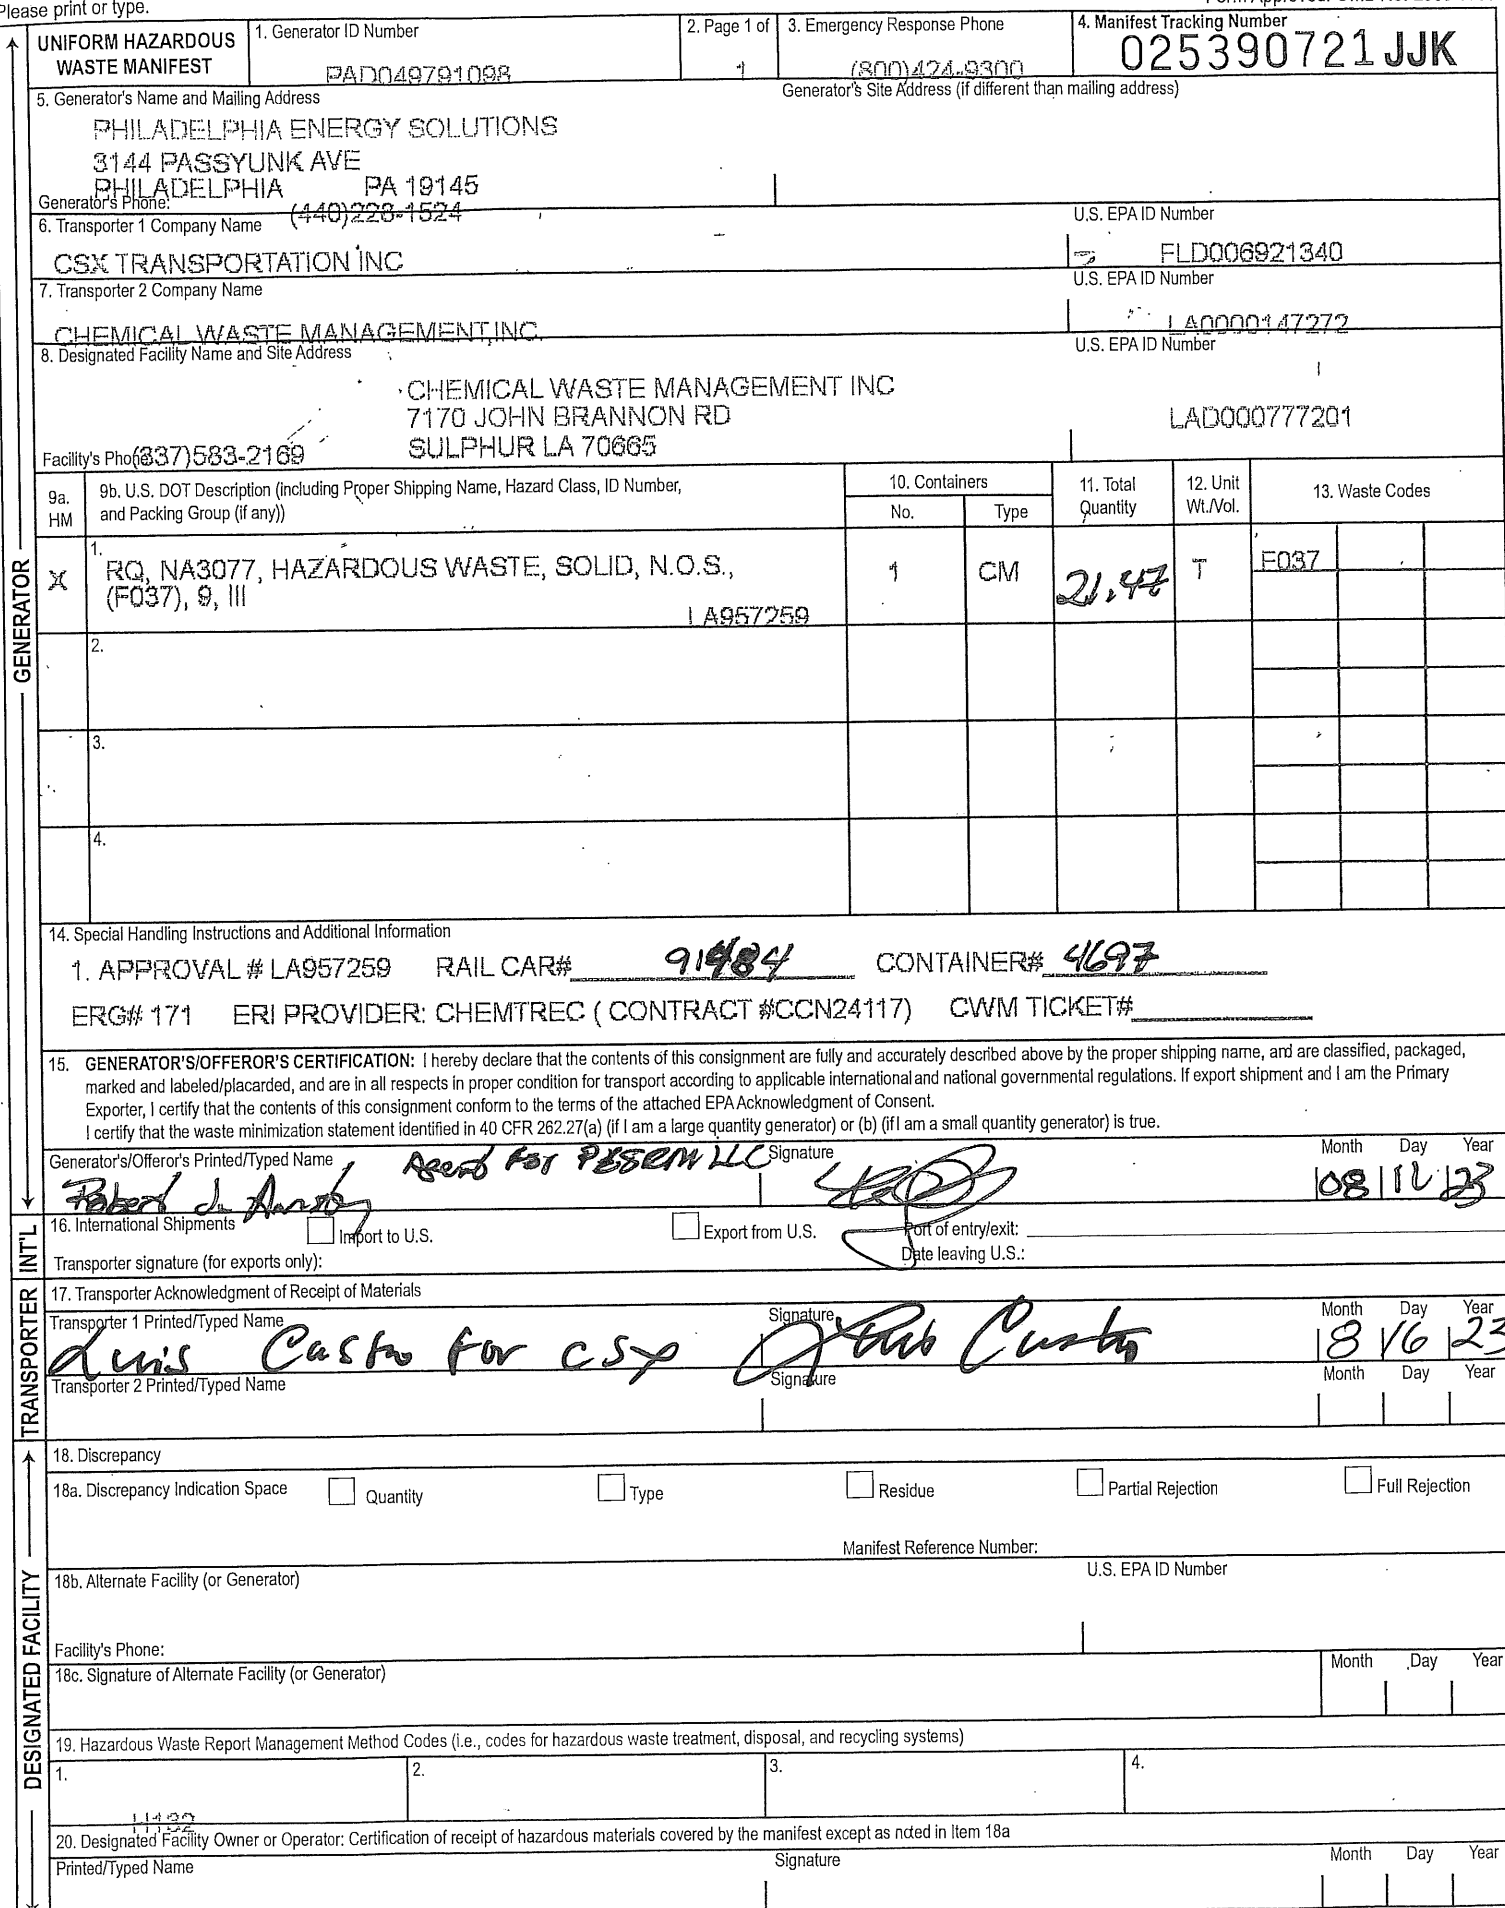 Please print or type.
UNIFORM HAZARDOUS
WASTE MANIFEST
1. Generator ID Number
PAD049791098
2. Page 1 of
1
3. Emergency Response Phone
(800)424-9300
4. Manifest Tracking Number
025390721 JJK
5. Generator's Name and Mailing Address
Generator's Site Address (if different than mailing address)
PHILADELPHIA ENERGY SOLUTIONS
3144 PASSYUNK AVE
PHILADELPHIA PA 19145
Generator's Phone: (440)228-1524
6. Transporter 1 Company Name
U.S. EPA ID Number
CSX TRANSPORTATION INC
FLD006921340
7. Transporter 2 Company Name
U.S. EPA ID Number
CHEMICAL WASTE MANAGEMENT,INC.
LA0000147272
8. Designated Facility Name and Site Address
U.S. EPA ID Number
CHEMICAL WASTE MANAGEMENT INC
7170 JOHN BRANNON RD
SULPHUR LA 70665
LAD000777201
Facility's Pho(337)583-2169
9a.
HM
9b. U.S. DOT Description (including Proper Shipping Name, Hazard Class, ID Number,
and Packing Group (if any))
10. Containers
No.
Type
11. Total
Quantity
12. Unit
Wt./Vol.
13. Waste Codes
X
1.
RQ, NA3077, HAZARDOUS WASTE, SOLID, N.O.S.,
(F037), 9, III
LA957259
1
CM
21.47
T
F037
2.
3.
4.
14. Special Handling Instructions and Additional Information
1. APPROVAL # LA957259 RAIL CAR# 91484 CONTAINER# 4697
ERG# 171 ERI PROVIDER: CHEMTREC ( CONTRACT #CCN24117) CWM TICKET#
15. GENERATOR'S/OFFEROR'S CERTIFICATION: I hereby declare that the contents of this consignment are fully and accurately described above by the proper shipping name, and are classified, packaged,
marked and labeled/placarded, and are in all respects in proper condition for transport according to applicable international and national governmental regulations. If export shipment and I am the Primary
Exporter, I certify that the contents of this consignment conform to the terms of the attached EPA Acknowledgment of Consent.
I certify that the waste minimization statement identified in 40 CFR 262.27(a) (if I am a large quantity generator) or (b) (if I am a small quantity generator) is true.
Generator's/Offeror's Printed/Typed Name
Agent For PESRM LLC
Signature
Month Day Year
Robert J.
08 12 23
16. International Shipments
Import to U.S.
Export from U.S.
Port of entry/exit:
Transporter signature (for exports only):
Date leaving U.S.:
17. Transporter Acknowledgment of Receipt of Materials
Transporter 1 Printed/Typed Name
Signature
Month Day Year
Luis Castro For CSX
Luis Castro
8 16 23
Transporter 2 Printed/Typed Name
Signature
Month Day Year
18. Discrepancy
18a. Discrepancy Indication Space
Quantity
Type
Residue
Partial Rejection
Full Rejection
Manifest Reference Number:
18b. Alternate Facility (or Generator)
U.S. EPA ID Number
Facility's Phone:
18c. Signature of Alternate Facility (or Generator)
Month Day Year
19. Hazardous Waste Report Management Method Codes (i.e., codes for hazardous waste treatment, disposal, and recycling systems)
1.
2.
3.
4.
H132
20. Designated Facility Owner or Operator: Certification of receipt of hazardous materials covered by the manifest except as noted in Item 18a
Printed/Typed Name
Signature
Month Day Year
GENERATOR
INT'L
TRANSPORTER
DESIGNATED FACILITY